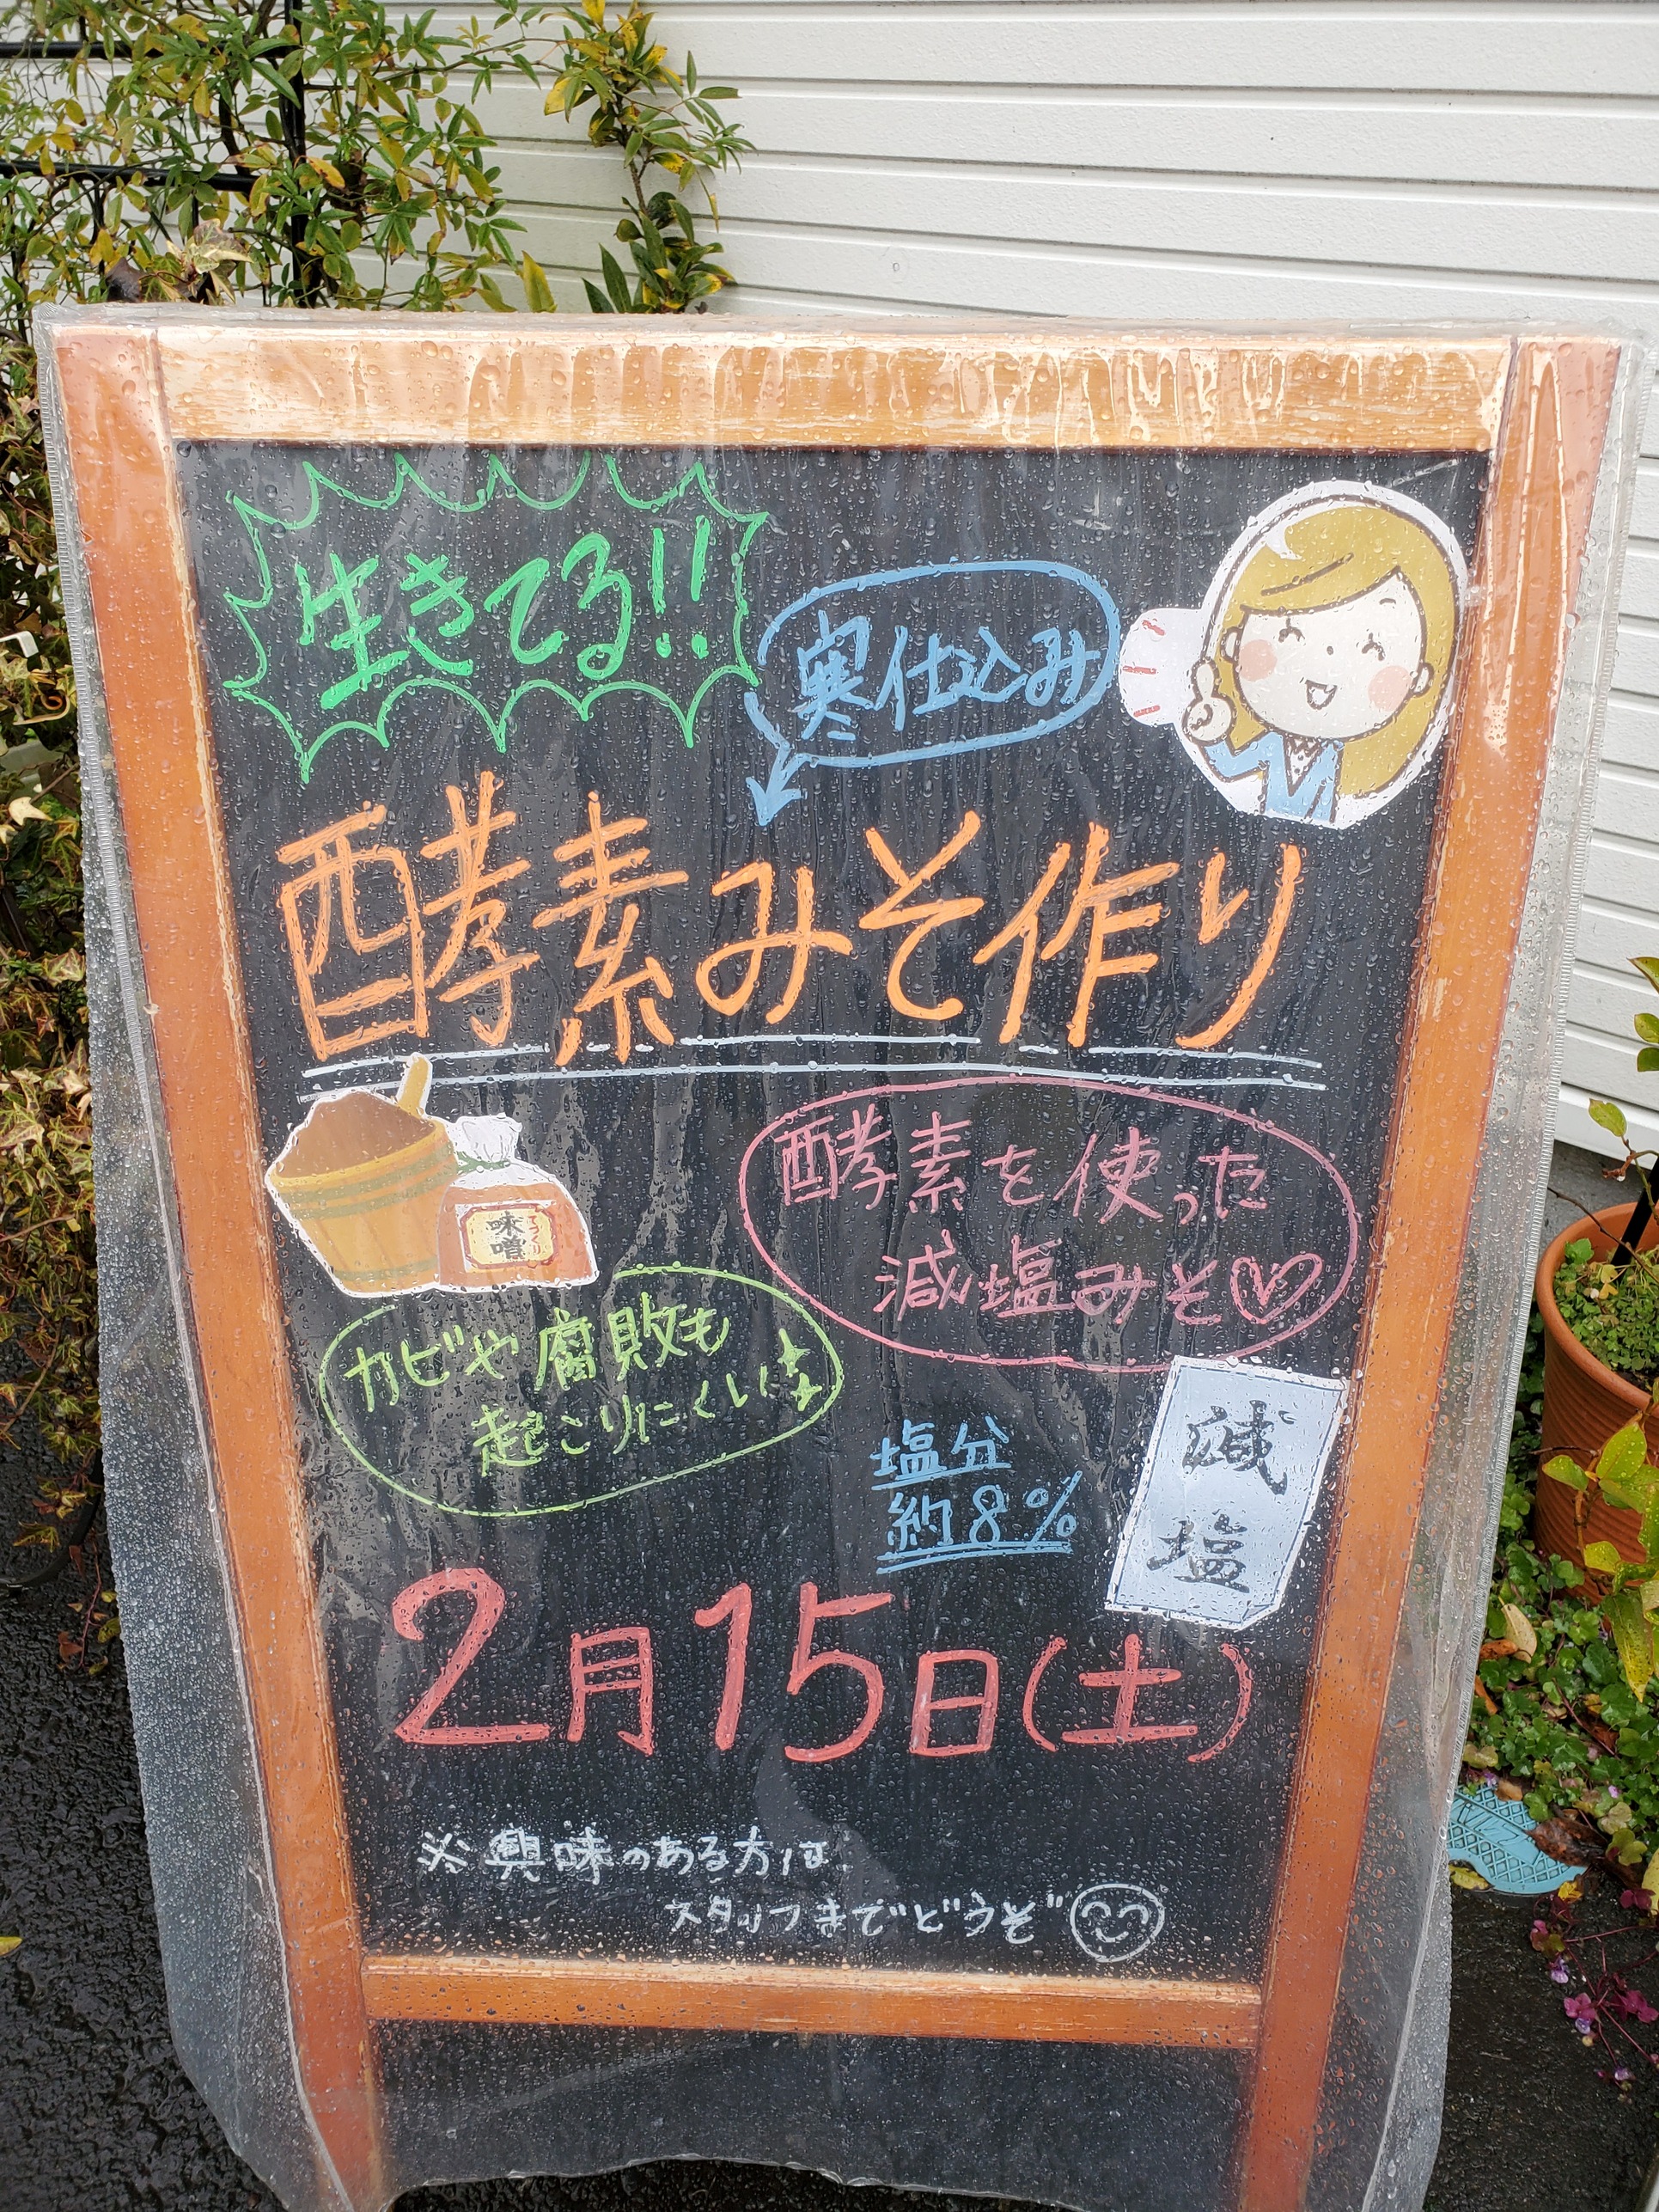 生きてる!!
寒仕込み
酵素みそ作り
味噌
てづくり
酵素を使った
減塩みそ♡
カビや腐敗も
起こりにくい
塩分
約8%
減塩
2月15日(土)
※興味のある方は
スタッフまでどうぞ